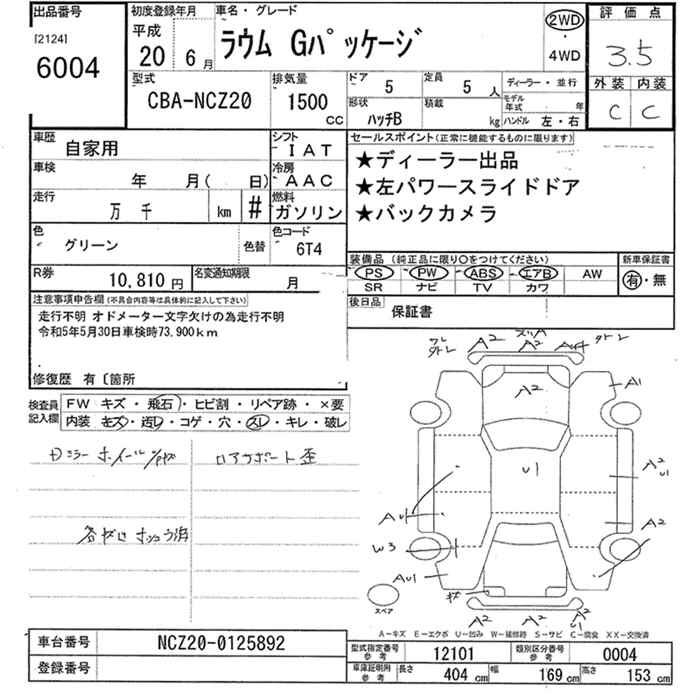 出品番号
[2124]
6004
初度登録年月
平成
20 6月
車名・グレード
ラウム Gパッケージ
2WD
・
4WD
評価点
3.5
外装 内装
C C
型式
CBA-NCZ20
排気量
1500
CC
ドア
5
定員
5 人
形状
ハッチB
積載
kg
ディーラー・並行
モデル年式 年
ハンドル 左・右
車歴
自家用
シフト
IAT
車検
年 月( 日)
冷房
AAC
走行
万 千 km #
燃料
ガソリン
色
グリーン
色替
色コード
6T4
R券
10,810 円
名変通知期限
月
セールスポイント(正常に機能するものに限ります)
★ディーラー出品
★左パワースライドドア
★バックカメラ
装備品(純正品に限り○をつけてください)
PS PW ABS エアB AW
SR ナビ TV カワ
新車保証書
有・無
後日品
保証書
注意事項申告欄(不具合内容等は具体的に記入して下さい)
走行不明 オドメーター文字欠けの為走行不明
令和5年5月30日車検時73,900km
修復歴 有〔箇所
検査員記入欄
FW キズ・飛石・ヒビ割・リペア跡・×要
内装 キズ・汚レ・コゲ・穴・スレ・キレ・破レ
コアサポート歪
A2
A2
A2
A1
U1
A2
U1
AU1
A2
W3
AU1
スペア
A2
A2
A2
U1
A-キズ E-エクボ U-凹み W-補修跡 S-サビ C-腐食 XX-交換済
車台番号
NCZ20-0125892
登録番号
型式指定番号
参考
12101
類別区分番号
参考
0004
車庫証明用
参考
長さ
404 cm
幅
169 cm
高さ
153 cm